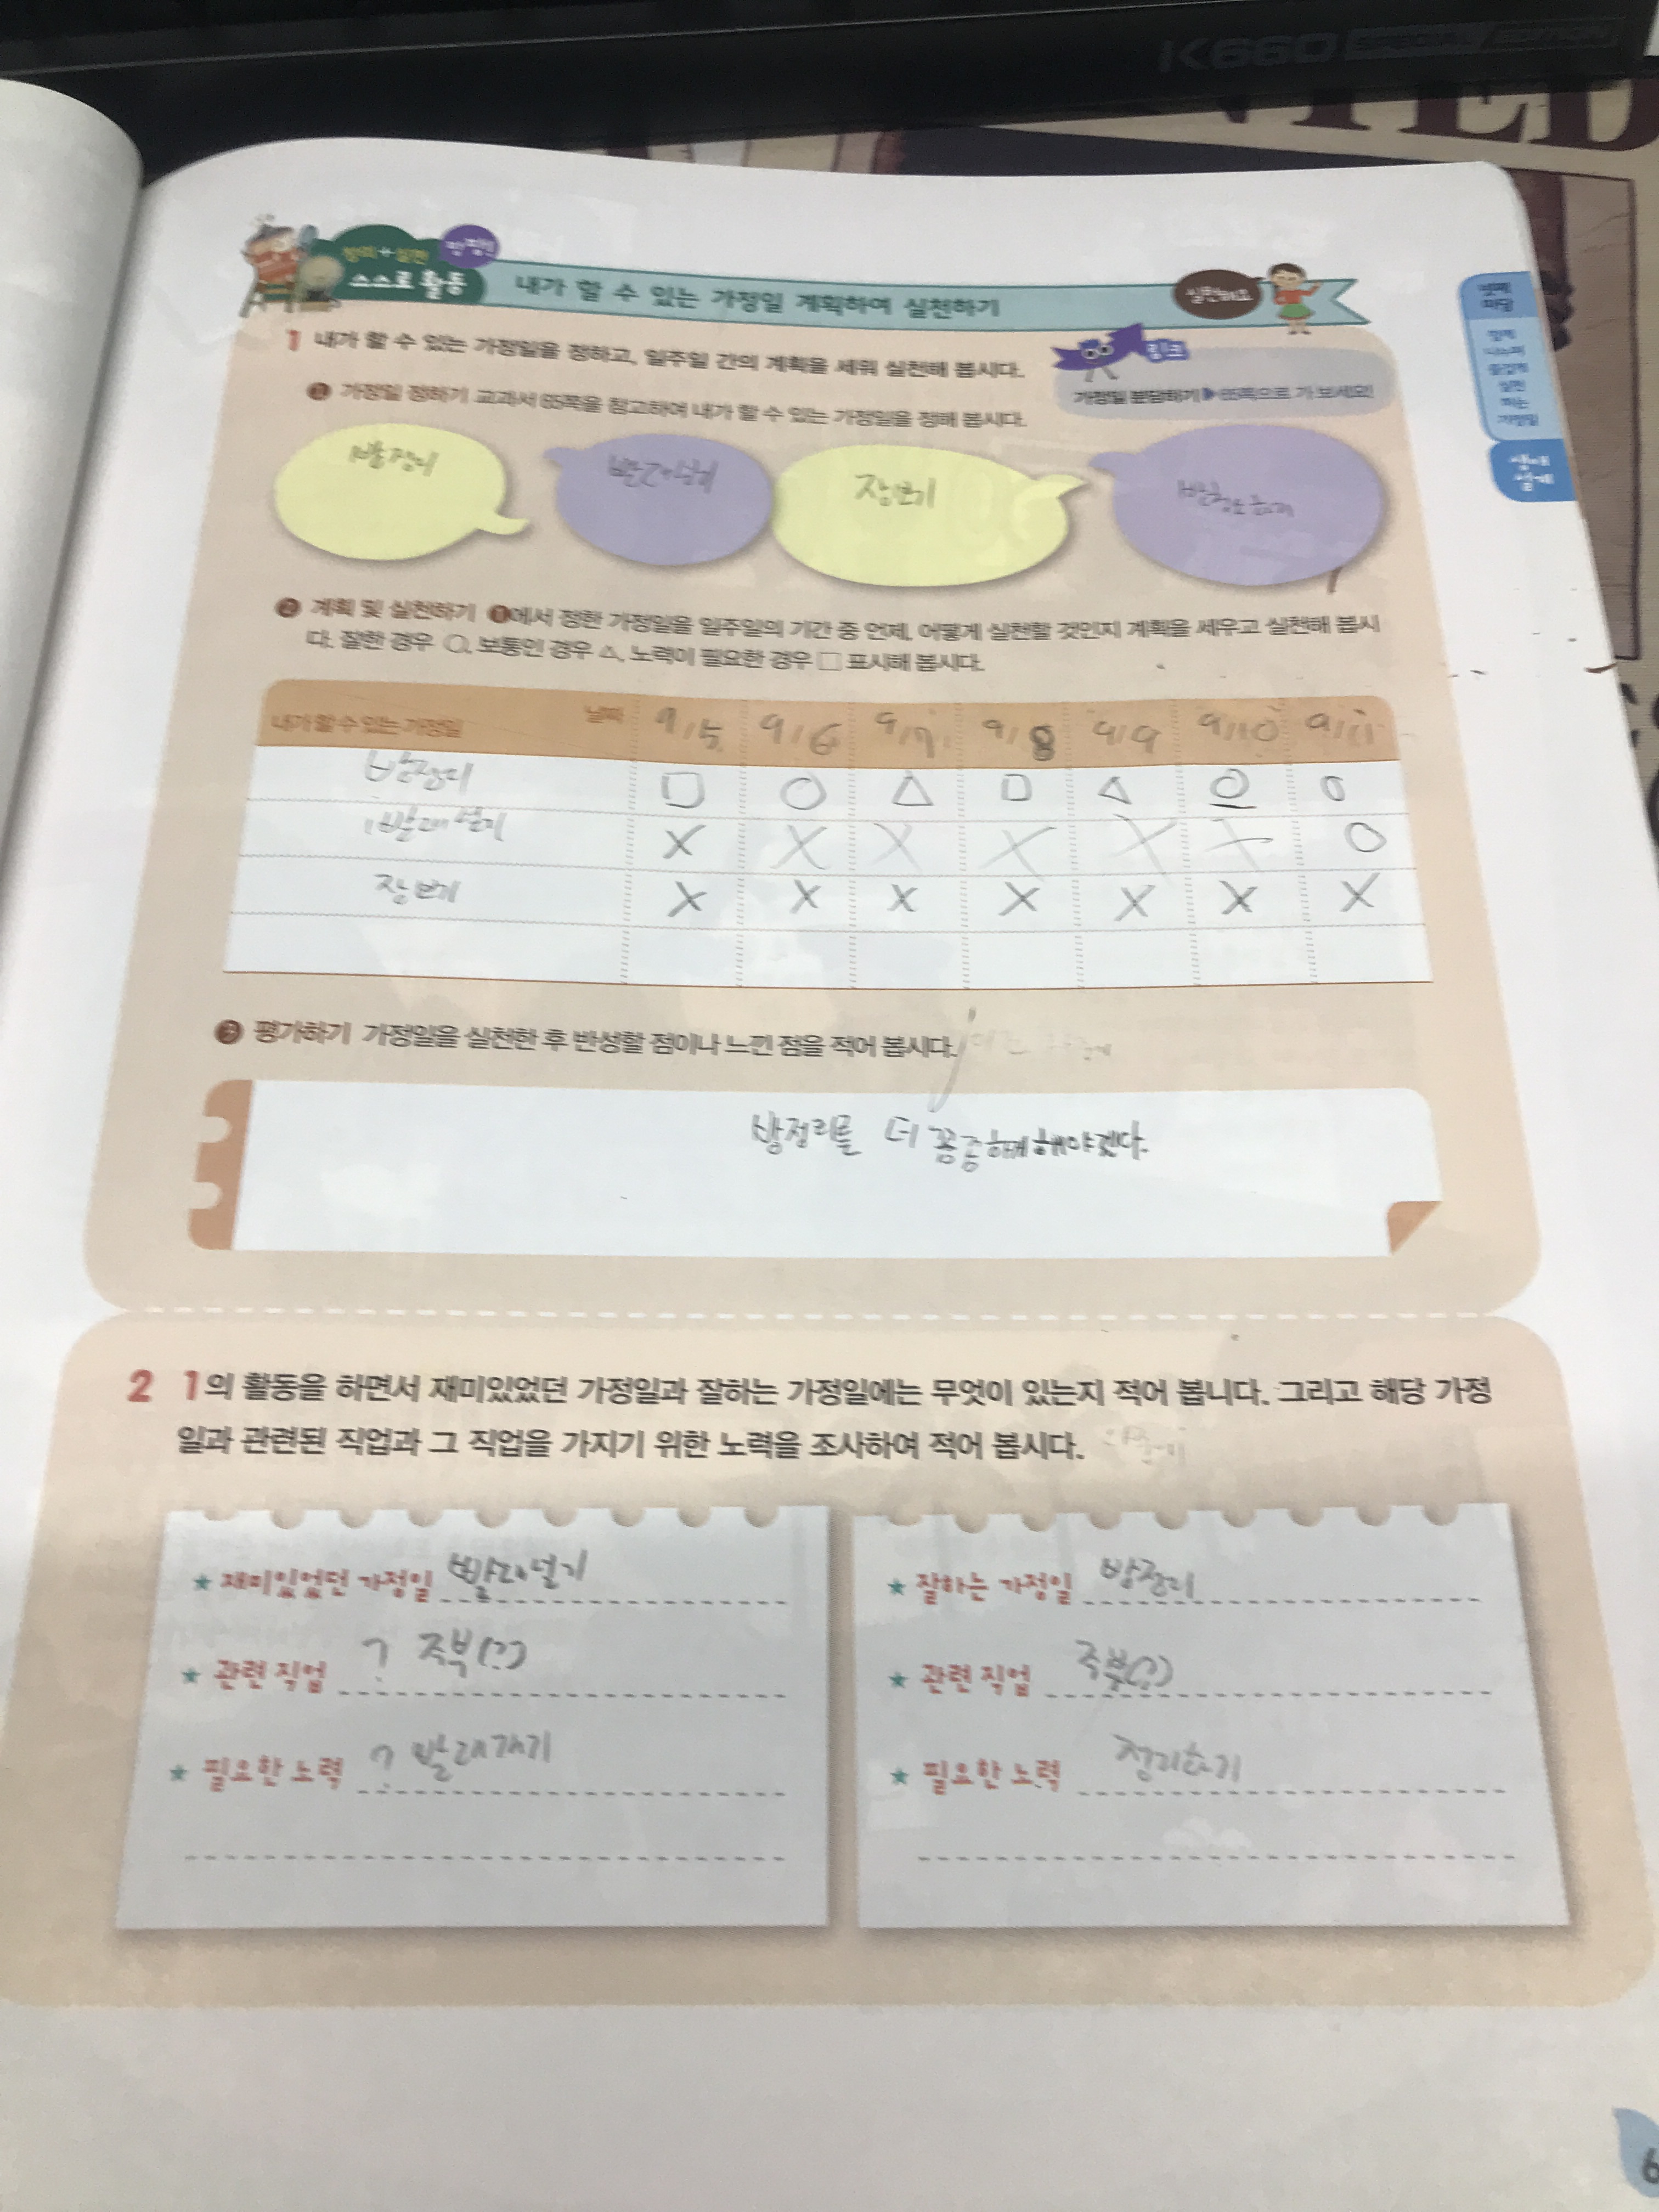 K660
스스로 활동 내가 할 수 있는 가정일 계획하여 실천하기 실천해요
1 내가 할 수 있는 가정일을 정하고, 일주일 간의 계획을 세워 실천해 봅시다.
링크
❶ 가정일 정하기 교과서 85쪽을 참고하여 내가 할 수 있는 가정일을 정해 봅시다.
가정일 분담하기 ▶ 85쪽으로 가 보세요!
장보기
❷ 계획 및 실천하기 ❶에서 정한 가정일을 일주일의 기간 중 언제, 어떻게 실천할 것인지 계획을 세우고 실천해 봅시
다. 잘한 경우 ○, 보통인 경우 △, 노력이 필요한 경우 □ 표시해 봅시다.
내가 할 수 있는 가정일 날짜 9/5 9/6 9/7 9/8 9/9 9/10 9/11
방정리 □ ○ △ □ △ ○ ○
빨래널기 X X X X X X ○
장보기 X X X X X X X
❸ 평가하기 가정일을 실천한 후 반성할 점이나 느낀 점을 적어 봅시다.
방정리를 더 꼼꼼하게 해야겠다.
2 1의 활동을 하면서 재미있었던 가정일과 잘하는 가정일에는 무엇이 있는지 적어 봅니다. 그리고 해당 가정
일과 관련된 직업과 그 직업을 가지기 위한 노력을 조사하여 적어 봅시다.
★ 재미있었던 가정일 빨래널기
★ 관련 직업 ? 주부(?)
★ 필요한 노력 ? 빨래개기
★ 잘하는 가정일 방정리
★ 관련 직업 주부(?)
★ 필요한 노력 정리하기
6